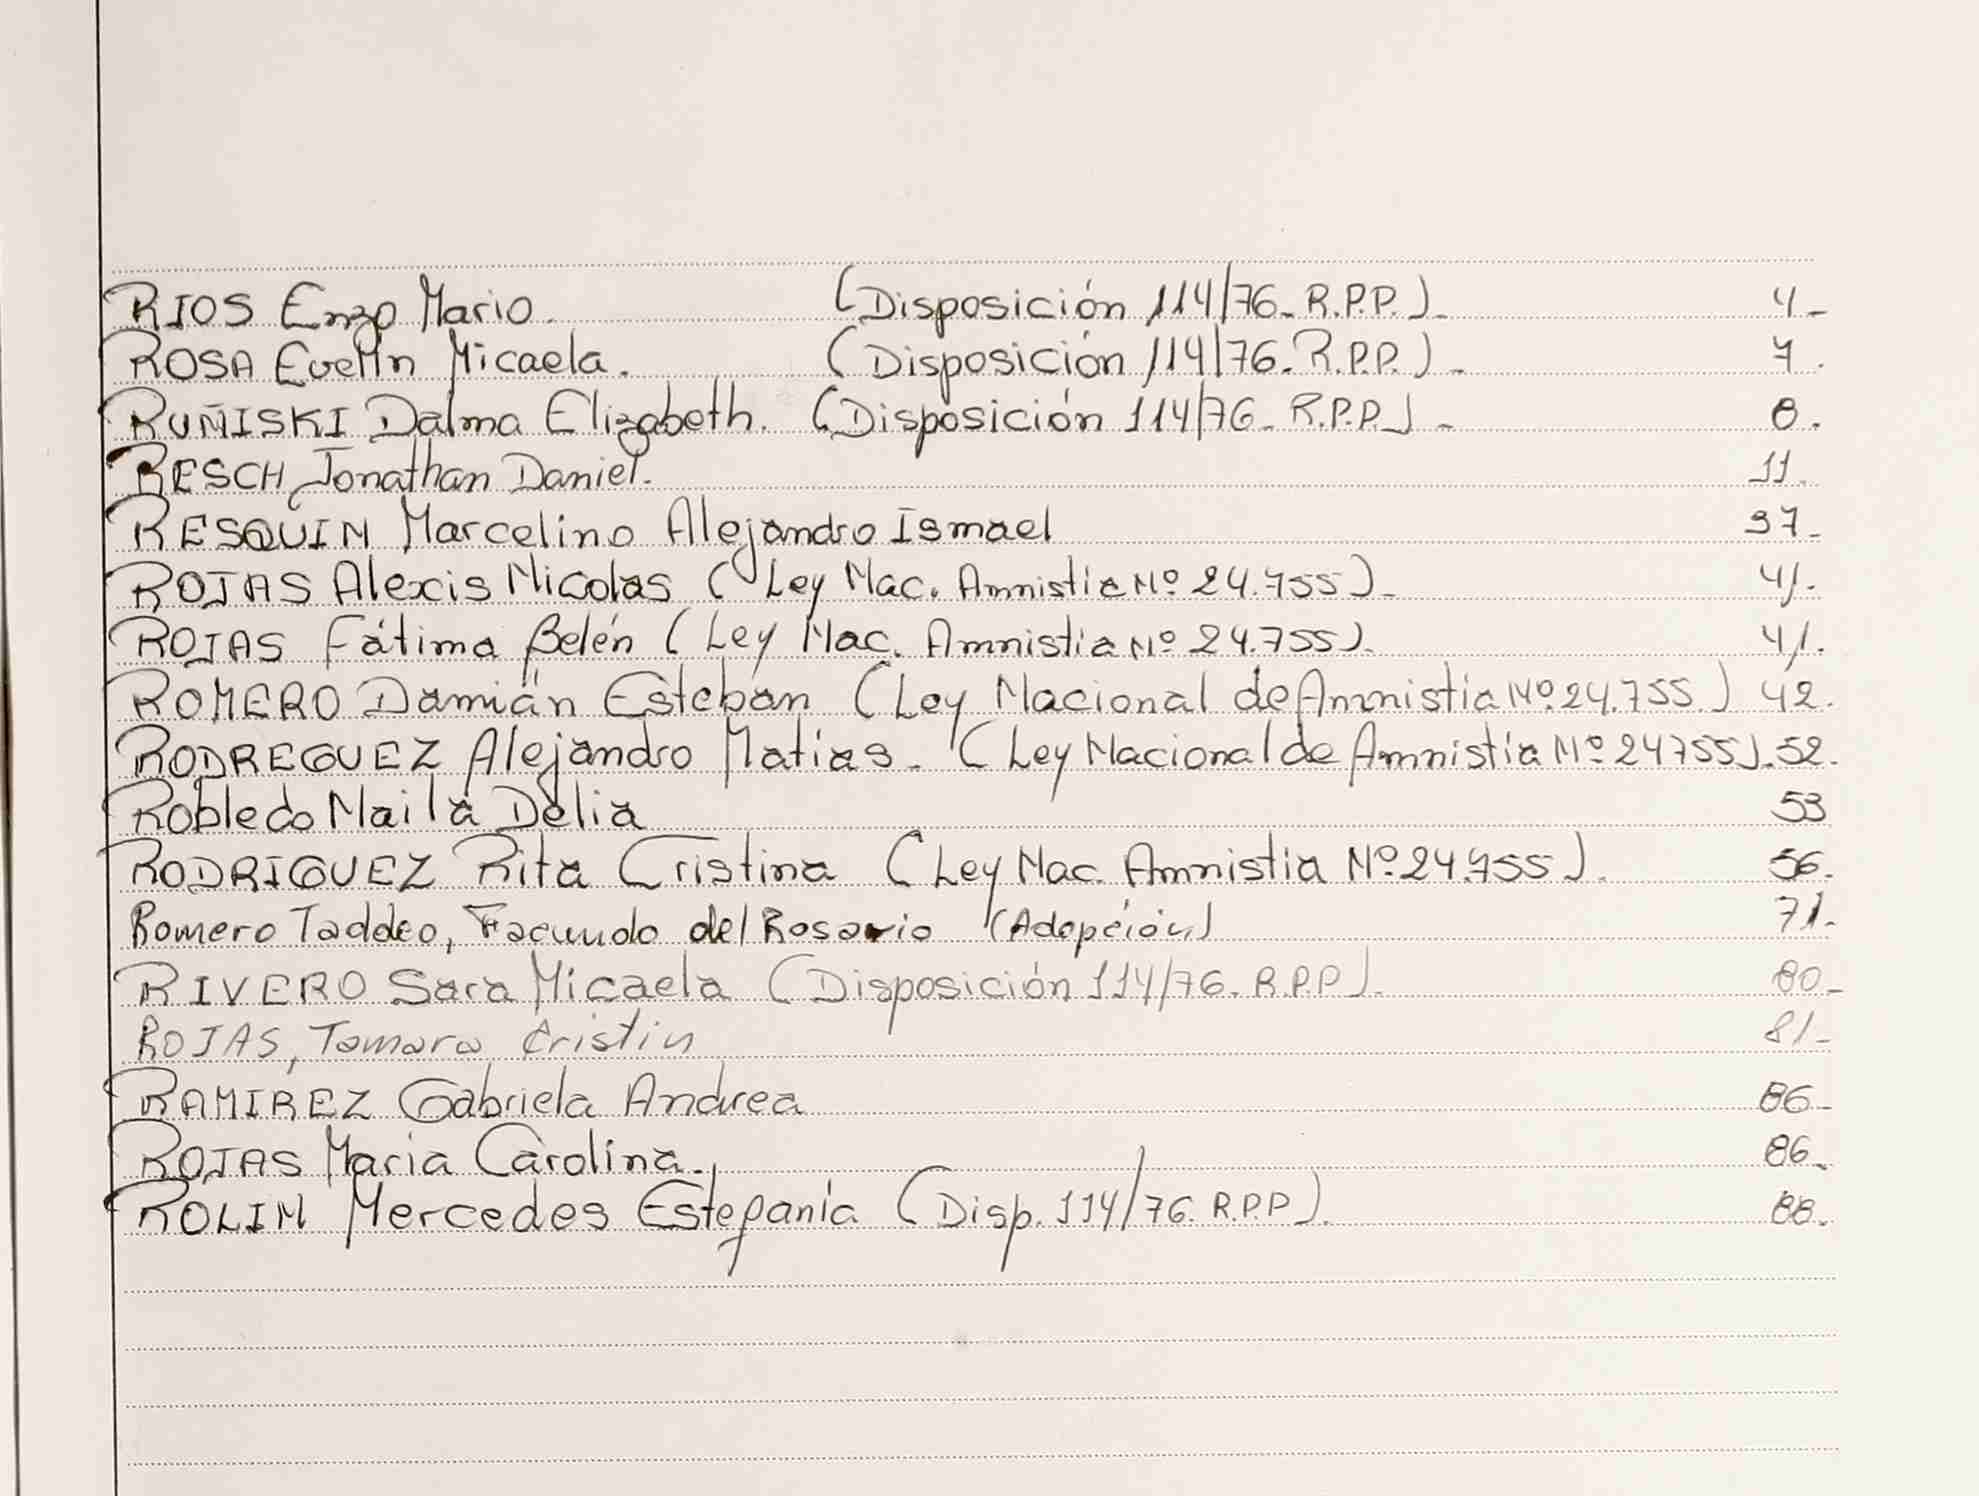 RIOS Enzo Mario. (Disposición 114/76. R.P.P.). 4.
ROSA Evelin Micaela. (Disposición 114/76. R.P.P.). 7.
RUÑISKI Dalma Elizabeth. (Disposición 114/76. R.P.P.). 8.
RESCH, Jonathan Daniel. 11.
RESQUIN Marcelino Alejandro Ismael 37.
ROJAS Alexis Nicolas (Ley Nac. Amnistia Nº 24.755). 41.
ROJAS Fátima Belén (Ley Nac. Amnistia Nº 24.755). 41.
ROMERO Damián Esteban (Ley Nacional de Amnistia Nº 24.755.) 42.
RODREGUEZ Alejandro Matias. (Ley Nacional de Amnistía Nº 24755). 52.
Robledo Maila Delia 53
RODRIGUEZ Rita Cristina (Ley Nac. Amnistia Nº 24.755). 56.
Romero Taddeo, Facundo del Rosario (Adopción) 71.
RIVERO Sara Micaela (Disposición 114/76. R.P.P). 80.
ROJAS, Tamara Cristin 81.
RAMIREZ Gabriela Andrea 86.
ROJAS Maria Carolina. 86.
ROLIN Mercedes Estefanía (Disp. 114/76. R.P.P). 88.